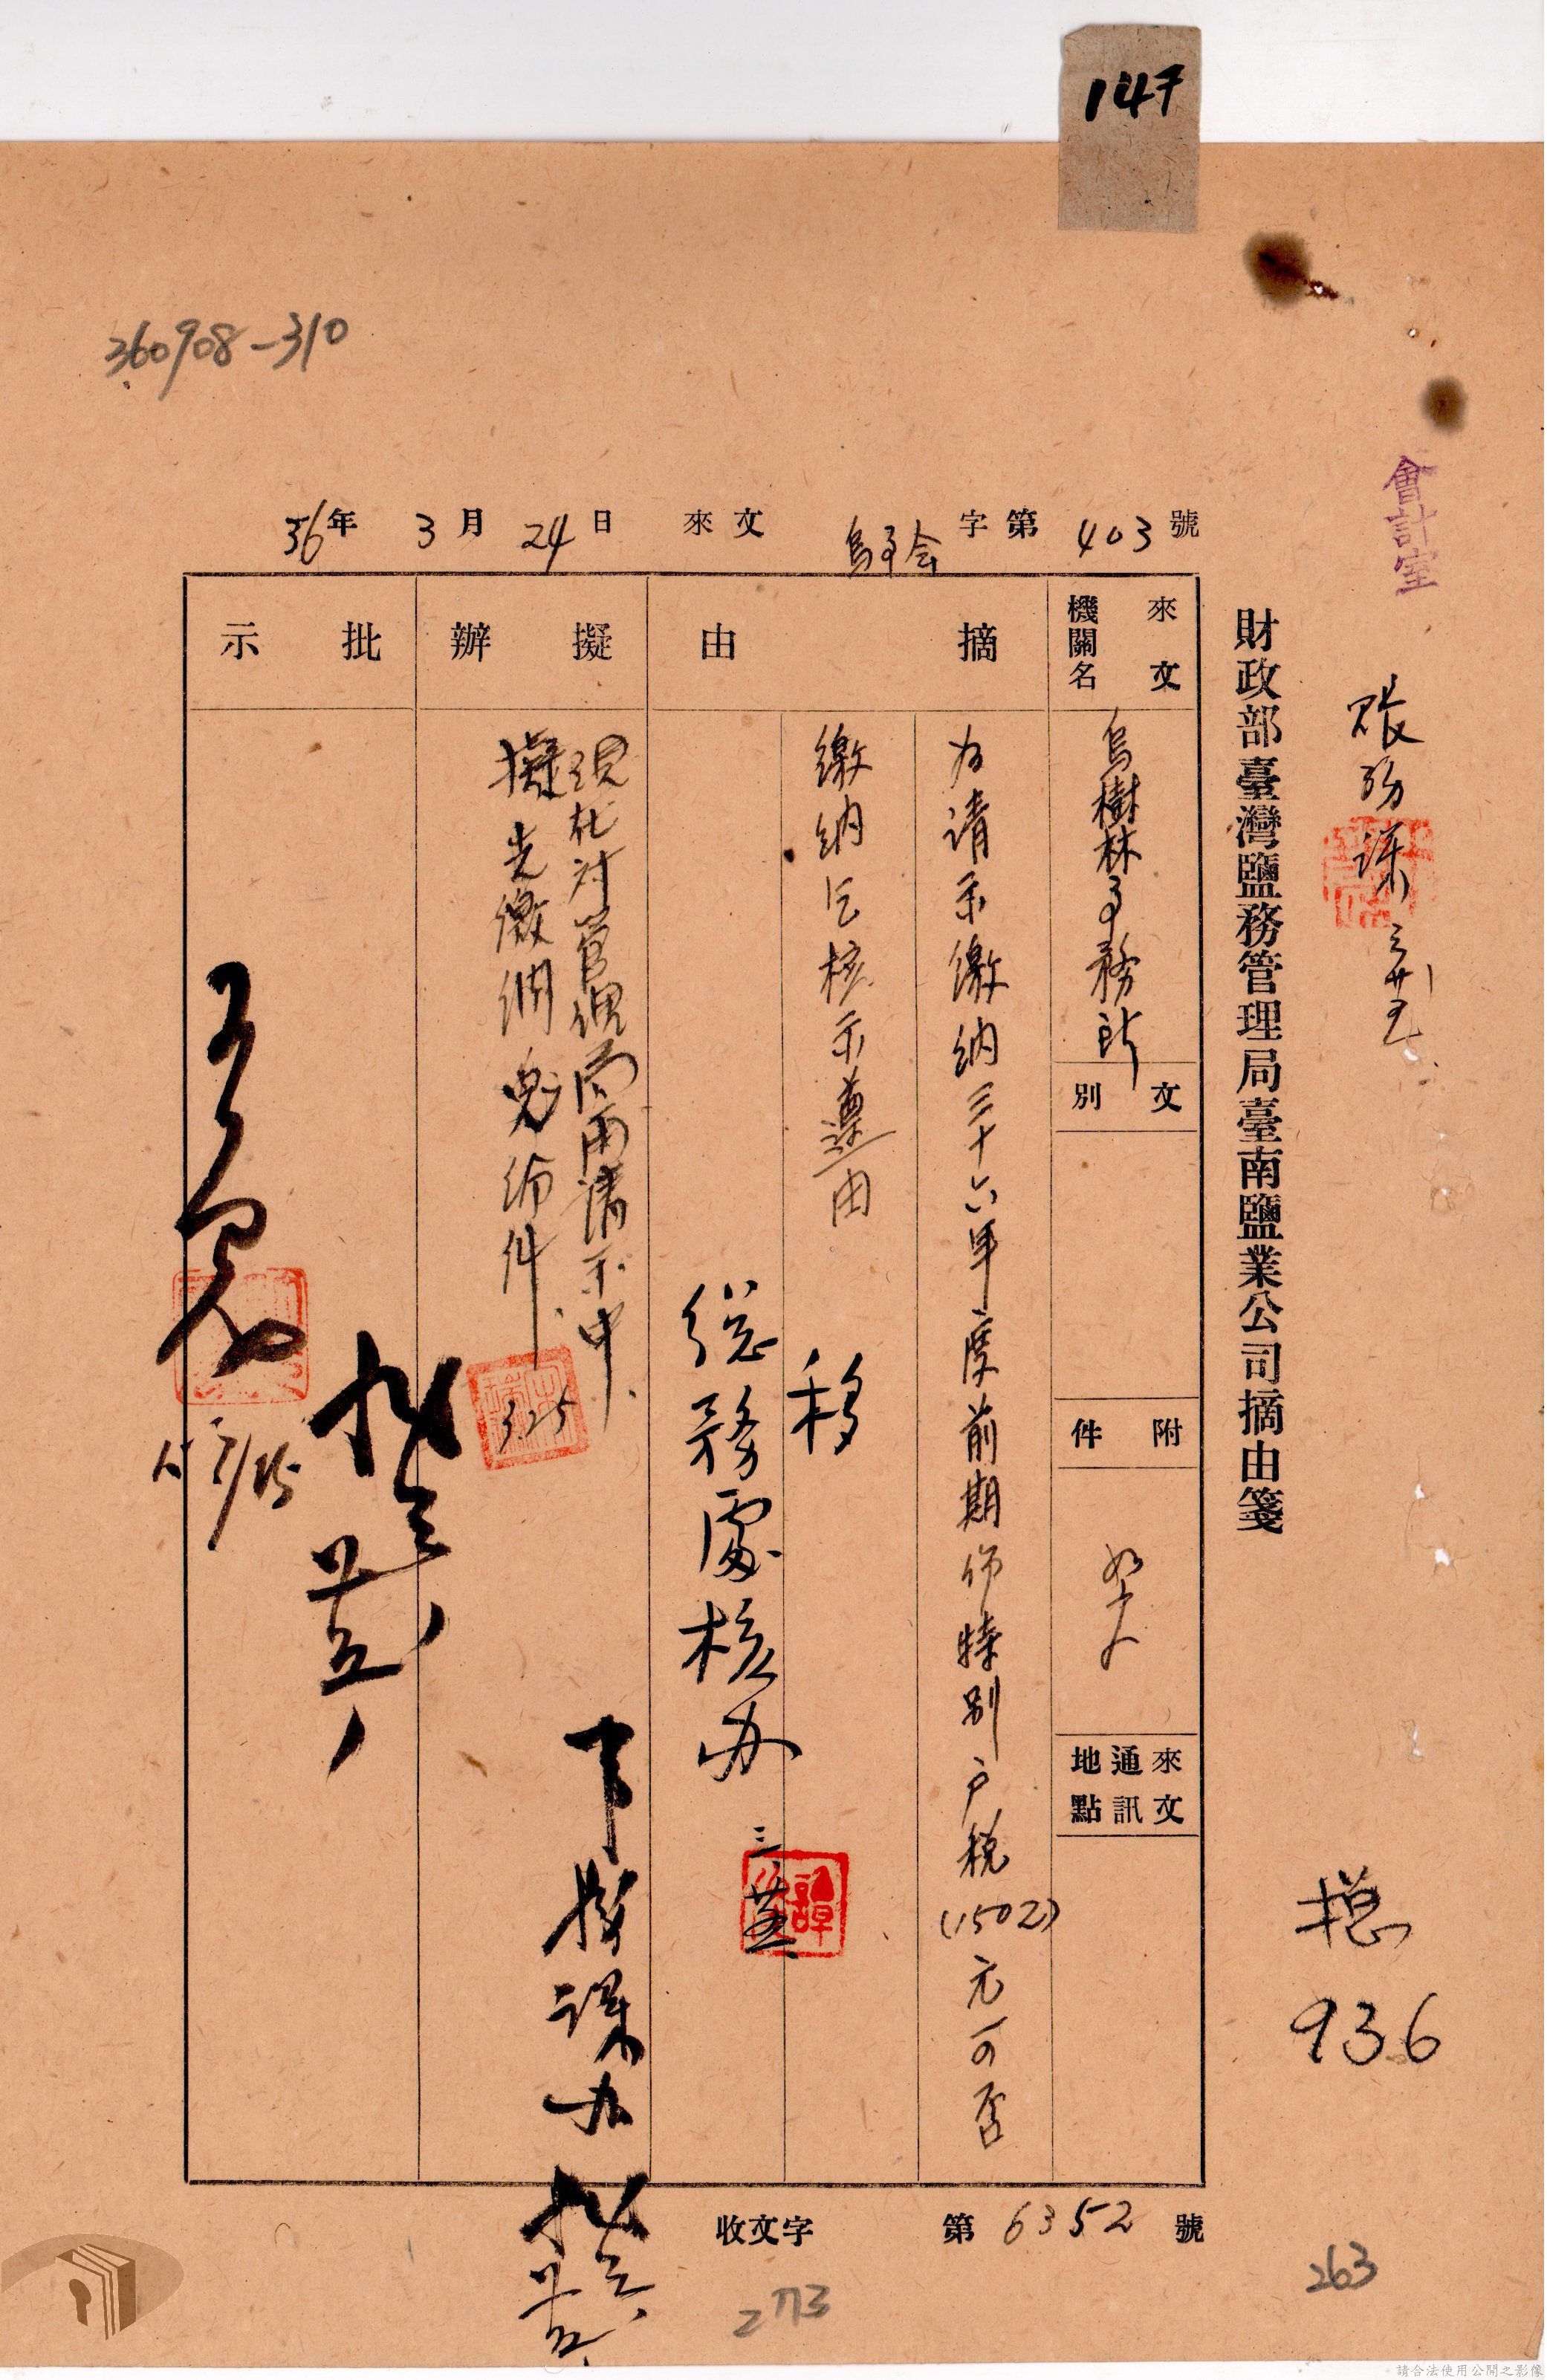 147
360908-310
會計室
賬務課
財政部臺灣鹽務管理局臺南鹽業公司摘由箋
總
936
36年3月24日
來文
烏事会字第403號
來文機關名
烏樹林事務所
文別
附件
如文
來文通訊地點
摘由
為請示繳納三十六年度前期份特別戶稅(1502)元可否
繳納乞核示遵由
移
總務處核办
擬辦
現在对管理局再請示中
擬先繳納
3.25
課办
批示
收文字第6352號
273
263
請合法使用公開之影像